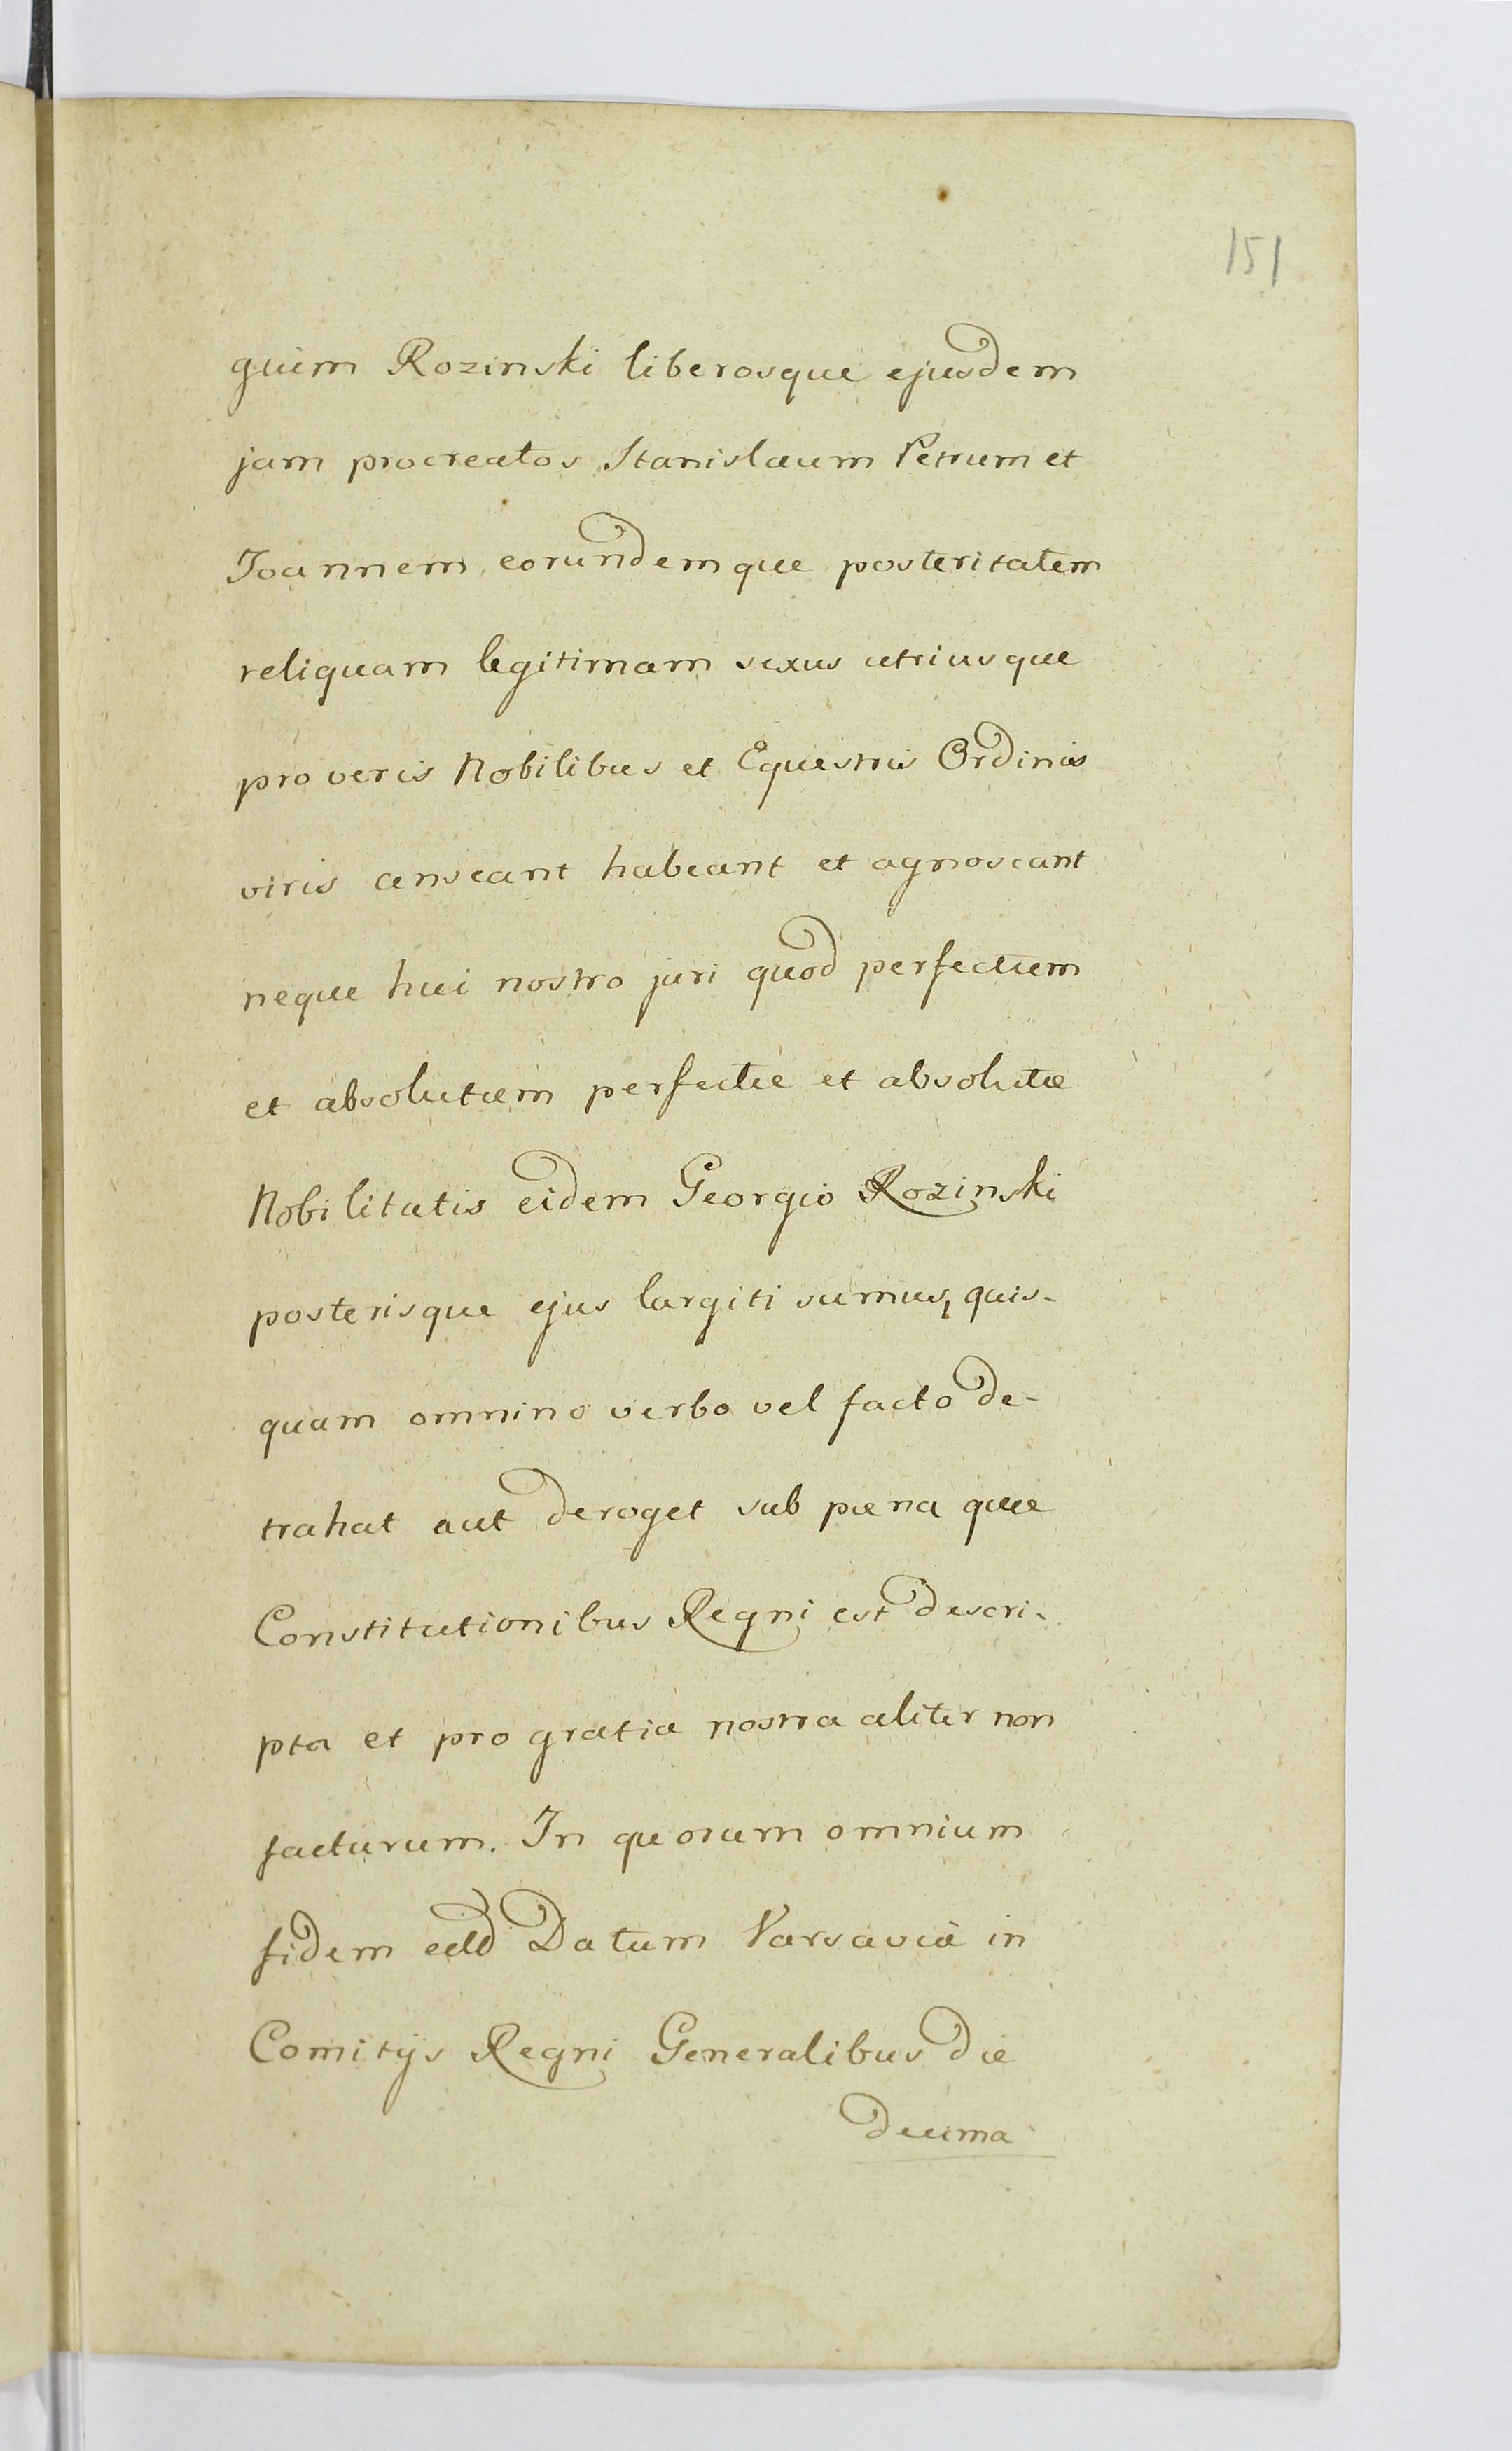 151
gium Rozinski liberosque ejusdem
jam procreatos Stanislaum Petrum et
Joannem eorundemque posteritatem
reliquam legitimam sexus utriusque
pro veris Nobilibus et Equestris Ordinis
viris censeant habeant et agnoscant
neque hui nostro juri quod perfectum
et absolutum perfectæ et absolutæ
Nobilitatis eidem Georgio Rozinski
posterisque ejus largiti sumus, quis-
quam omnino verbo vel facto de-
trahat aut deroget sub pæna quæ
Constitutionibus Regni est descri-
pta et pro gratia nostra aliter non
facturum. In quorum omnium
fidem Datum Varsaviæ in
Comitijs Regni Generalibus die
decima